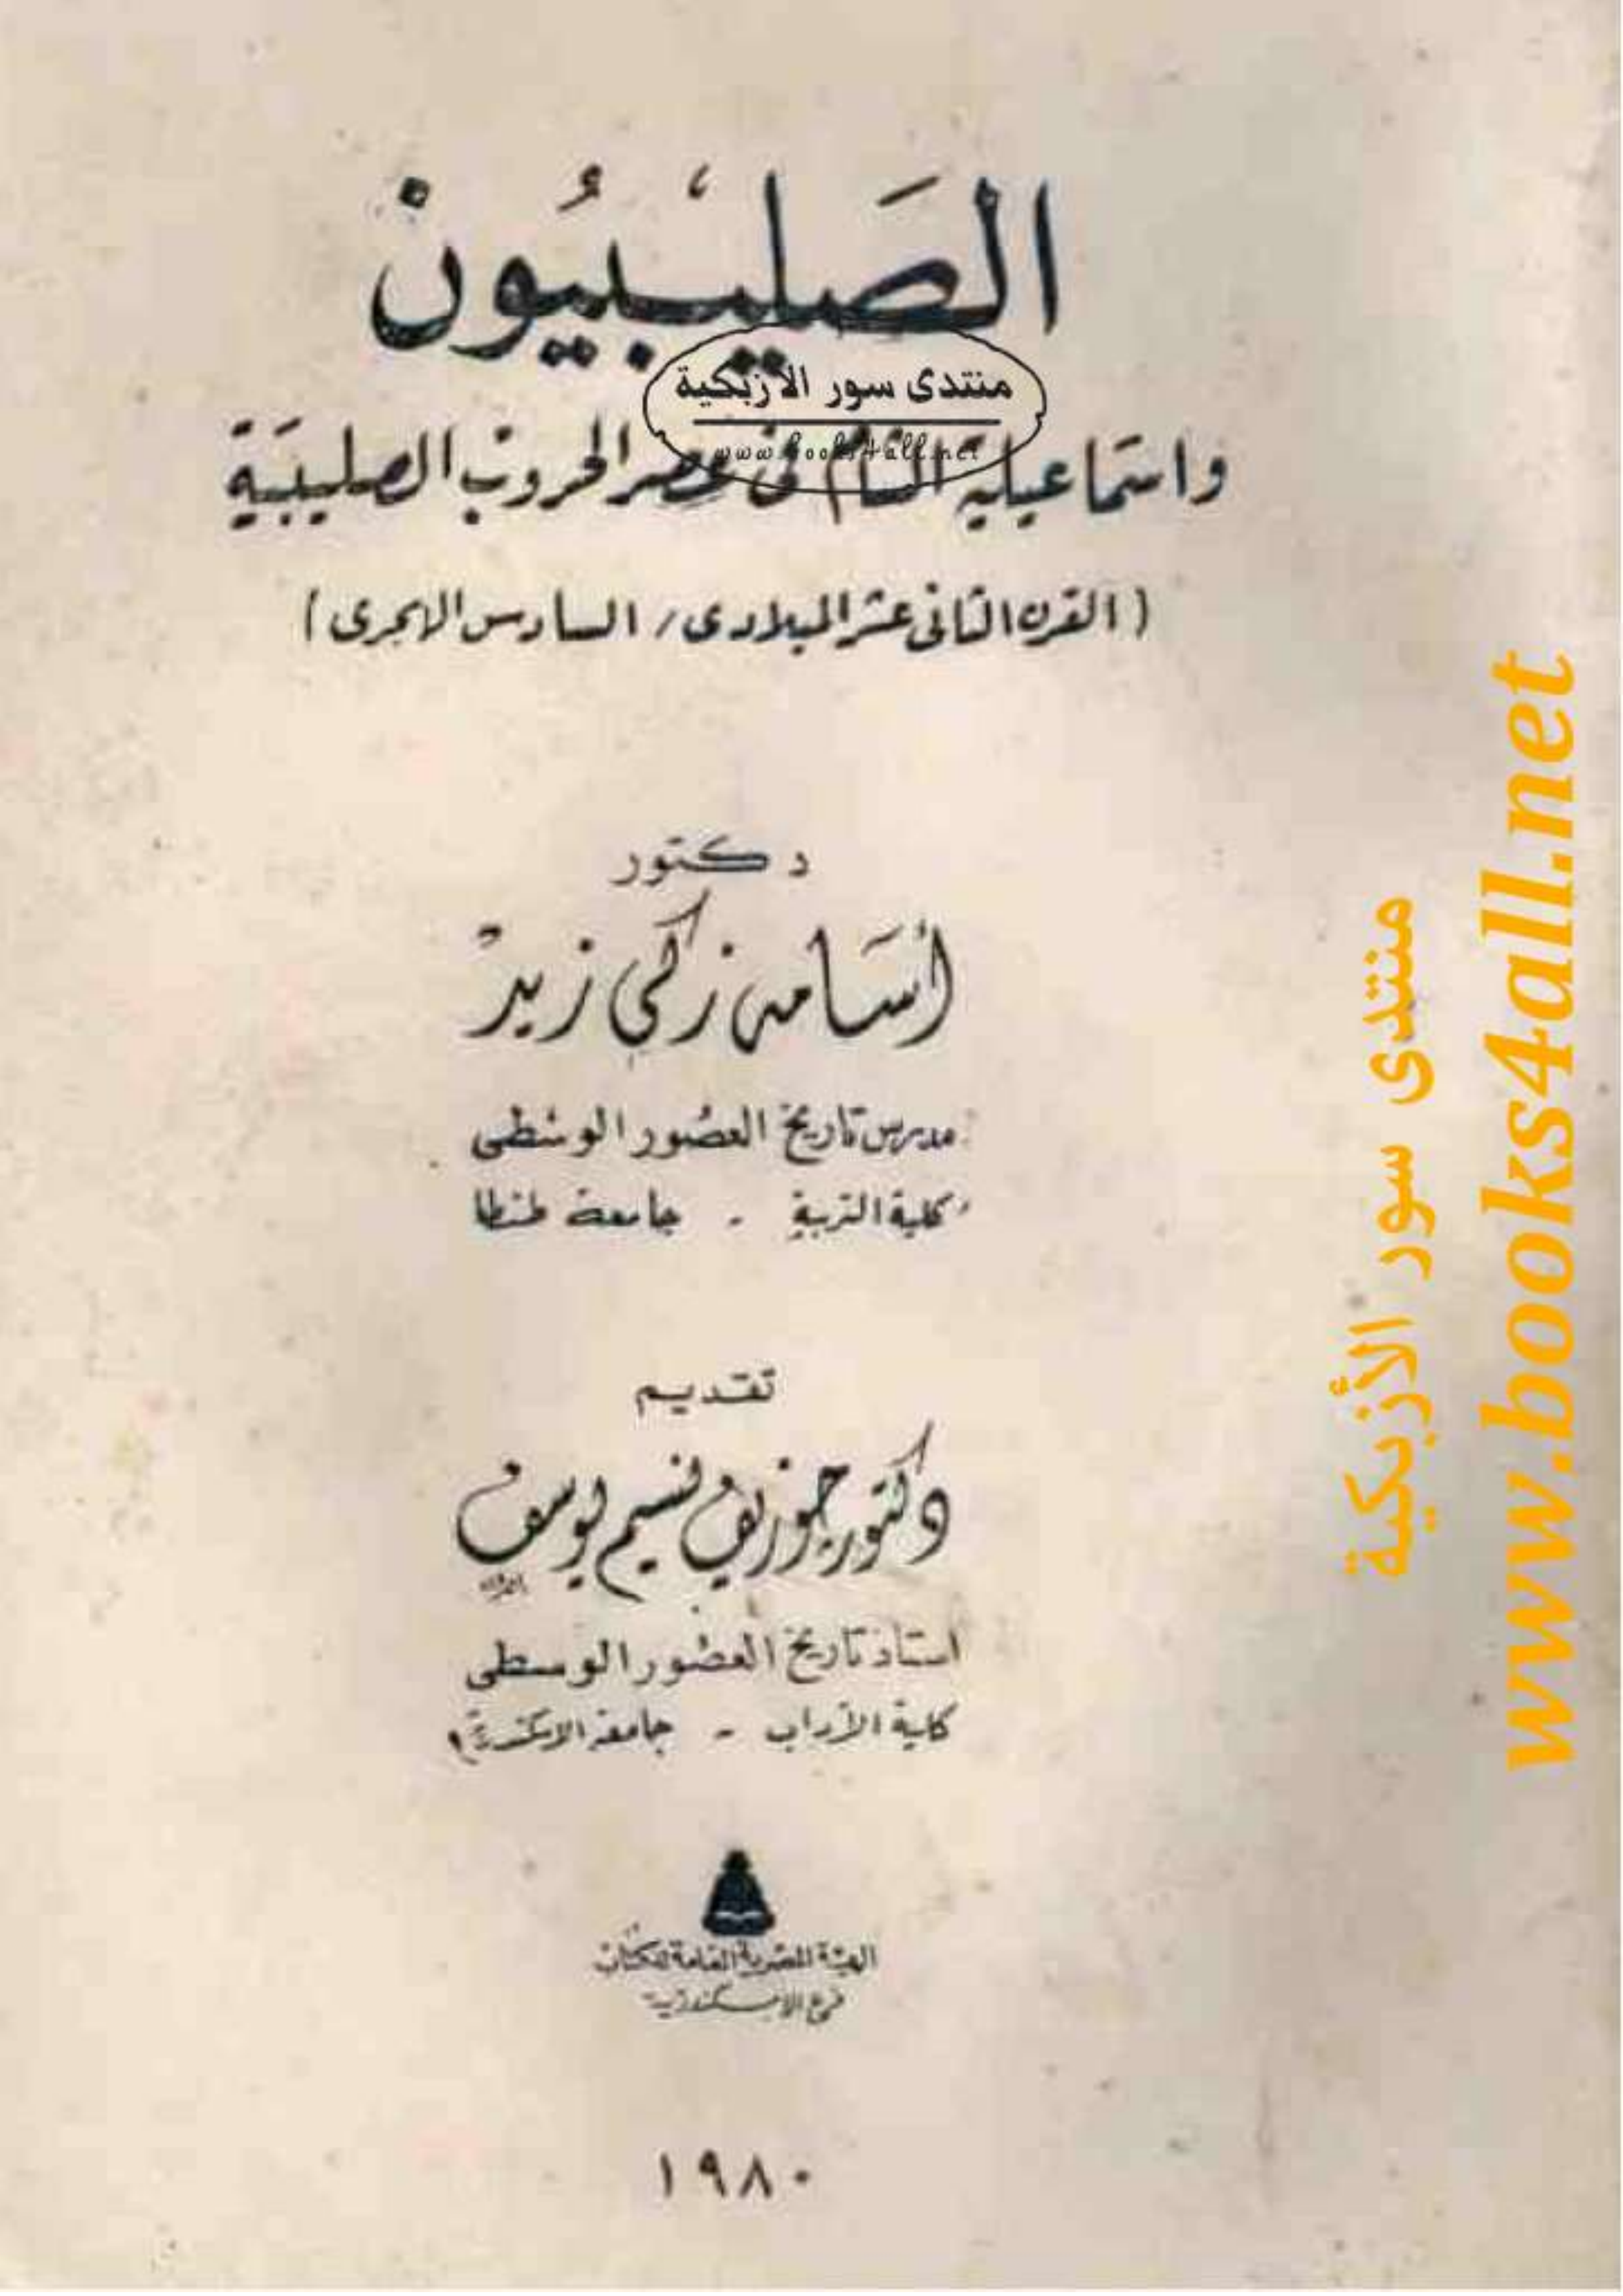 الصليبيون
منتدى سور الأزبكية
www.books4all.net
واسماعيلية الشام فى عصر الحروب الصليبية
(القرن الثانى عشر الميلادى / السادس الهجرى)
دكتور
أسامه زكى زيد
مدرس تاريخ العصور الوسطى
كلية التربية - جامعة طنطا
تقديم
دكتور جوزيف نسيم يوسف
استاذ تاريخ العصور الوسطى
كلية الآداب - جامعة الاسكندرية
الهيئة المصرية العامة للكتاب
فرع الاسكندرية
١٩٨٠
منتدى سور الأزبكية
www.books4all.net